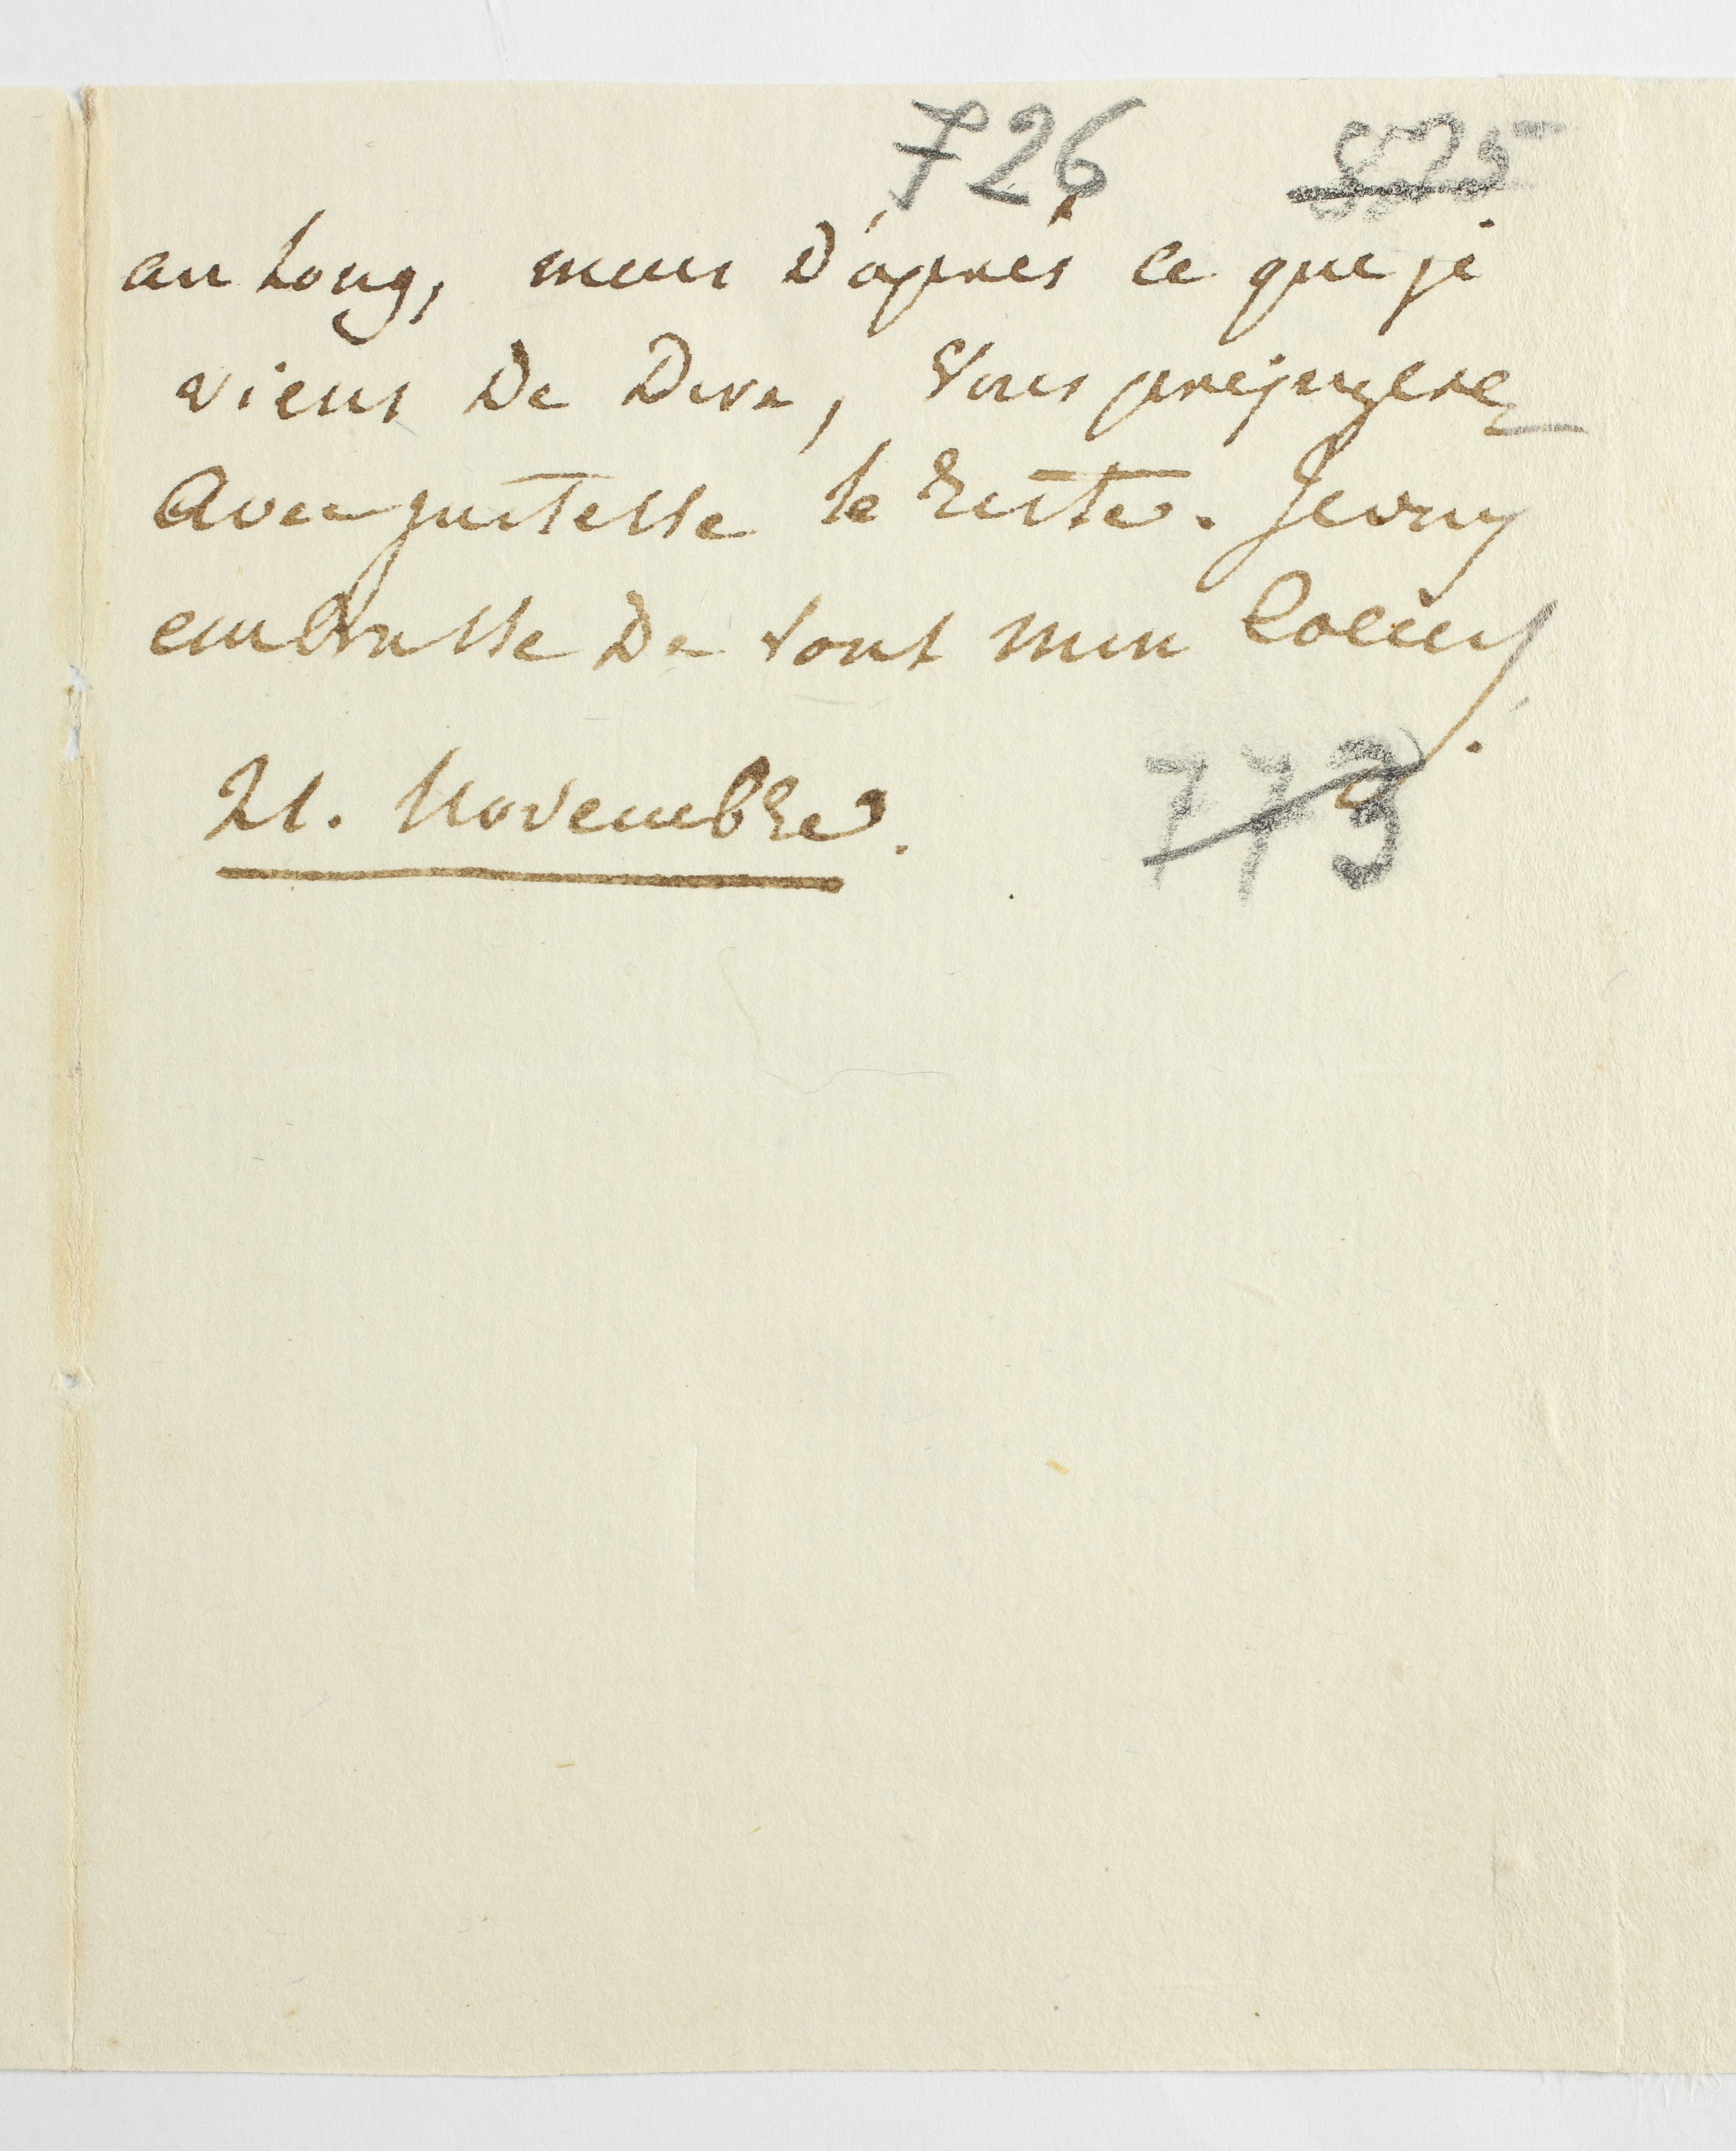 726 825
au long, mais d'après ce que je
viens De Dire, Vous prejugerez
Avec justesse le Reste. Je vous
embrasse De tout mon Coeur.
21. Novembre.
773